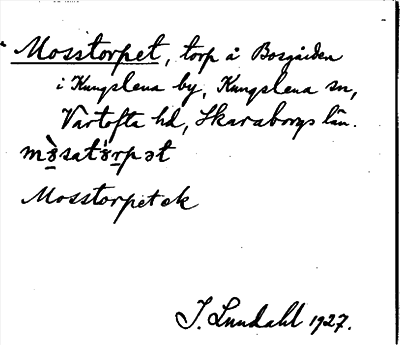 Mosstorpet, torp å Bosgården
i Kungslena by, Kungslena sn,
Vartofta hd, Skaraborgs län.
Mosstorpet ek
I. Lundahl 1927.